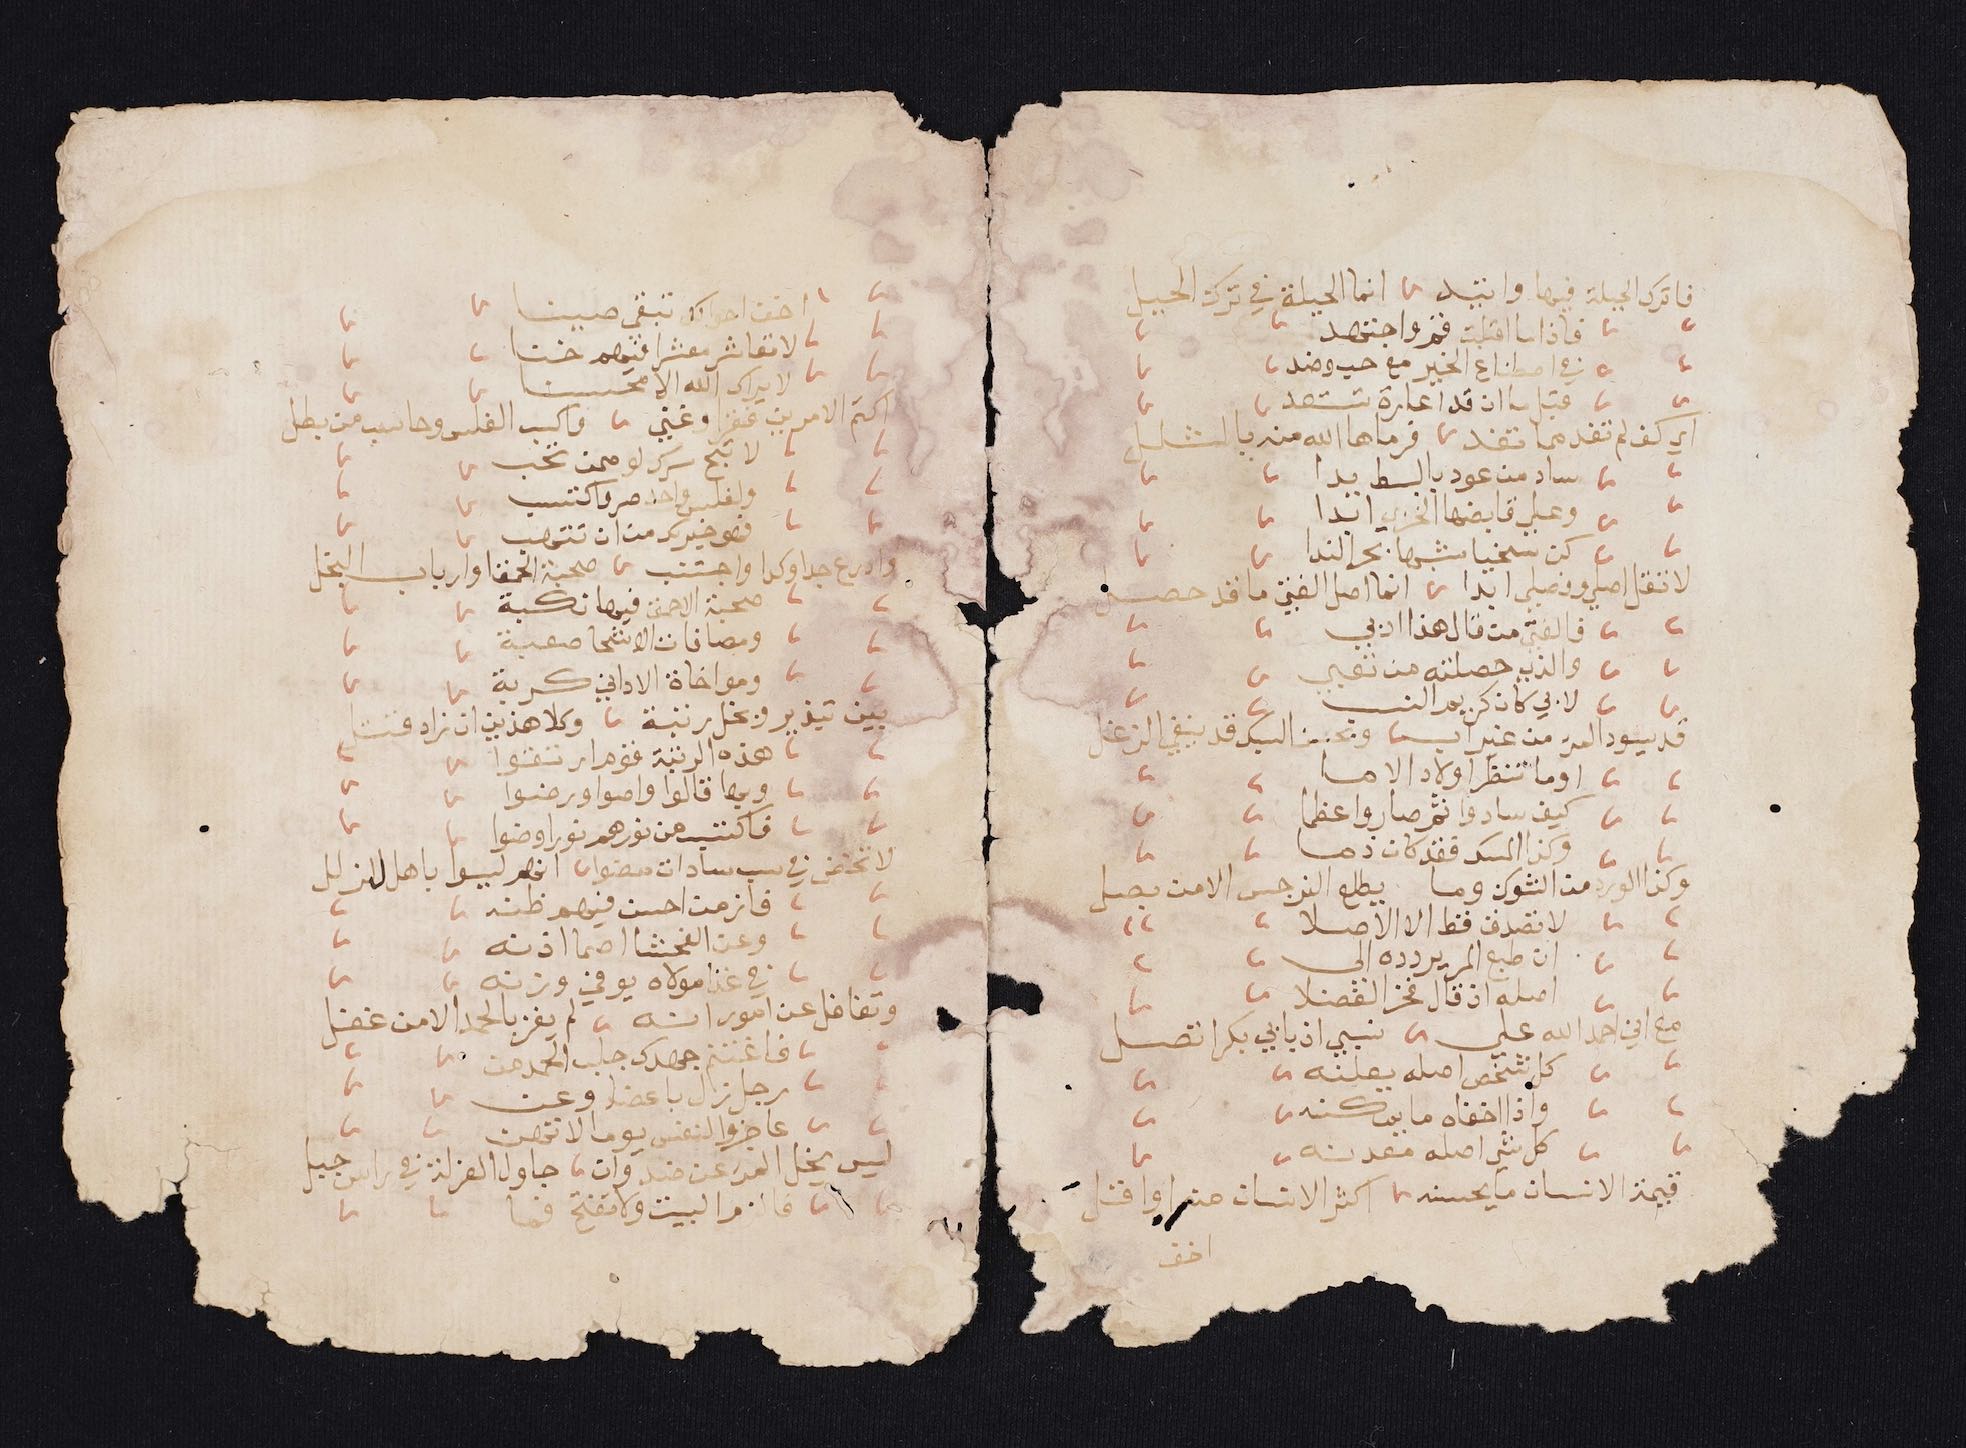 فاترك الحيلة فيها واتئد انما الحيلة في ترك الحيل
فاذا ما اقبلت قم واجتهد
في اصطناع الخير مع حب وضد
قبل ما ان قد اعارة تستعد
اي كف لم تفد مما تفد فرماها الله منه بالشلل
ساد من عود بالبسط يدا
وعلي قابضها الخزي ابدا
كن سخيا مشبها بحر الندا
لا تقل اصلي وفصلي ابدا انما اصل الفتي ما قد حصل
فالفتي من قال هذا ادبي
والذي حصلته من تعبي
لا بي كان كريم النسب
قد يسود المرء من غير اب وبحسن السبك قد ينفي الزغل
اوما تنظر اولاد الاما
كيف سادوا ثم صاروا عظما
وكذا المسك فقد كان دما
وكذا الورد من الشوك وما يطلع النرجس الا من بصل
لا تصدف قط الا الاصلا
ان طبع المرء يردده الي
اصله اذ قال فخر الفضلا
مع اني احمد الله علي نسبي اذ بابي بكر اتصل
كل شخص اصله يعلنه
واذا اخفاه ما يمكنه
كل شي اصله معدنه
قيمة الانسان ما يحسنه اكثر الانسان منه او اقل
اخف
اخف احوالك تبقي صينا
لا تعاشر معشرا فيهم خنا
لا يراك الله الا محسنا
اكتم الامرين فقرا وغني واكسب الفلس وحاسب من بطل
لا تبح سرك لو ممن تحب
ولفلس واحد صر واكتسب
فهو خير لك من ان تنتهب
وادرع جدا وكدا واجتنب صحبة الحمقا وارباب البخل
صحبة الاحمق فيها نكبة
ومصافات الاشحا صعبة
ومواخاة الاداني كربة
بين تبذير وبخل رتبة وكلا هذين ان زاد قتل
هذه الرتبة قوم ارتضوا
وبها قالوا واصوا ورضوا
فاكتسب من نورهم نورا وضوا
لا تخض في سب سادات مضوا انهم ليسوا باهل للزلل
فاز من احسن فيهم ظنه
وعن الفحشا اصما اذنه
في غد مولاه يوفي وزنه
وتغافل عن امور انه لم يفز بالحمد الا من غفل
فاغتنم جهدك جلب الحمد من
رجل زال باعضا وعن
عاجز والنفس يوما لا تهن
ليس يخل المرء عن ضد وان حاول العزلة في راس جبل
فالزم البيت ولا تفتح فما